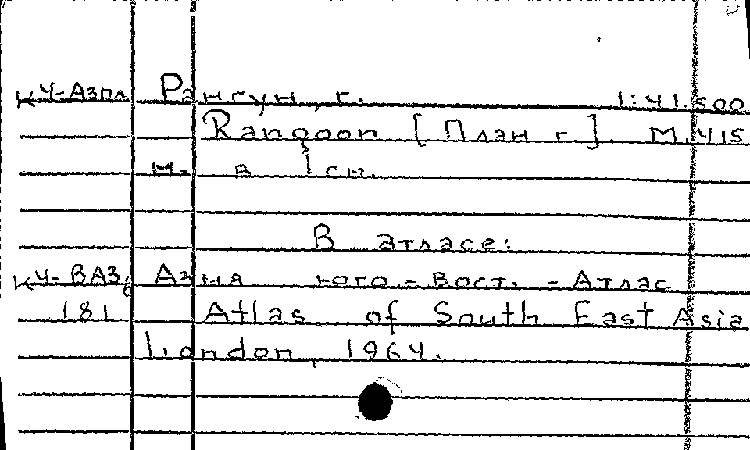 КУ-Азпл Рангун, г. 1:41.500
Rangoon [План г.] М. 415
м. в 1 см.
В атласе:
КУ-ВАЗ, Азия Юго-Вост. - Атлас
181 Atlas of South East Asia
London, 1964.